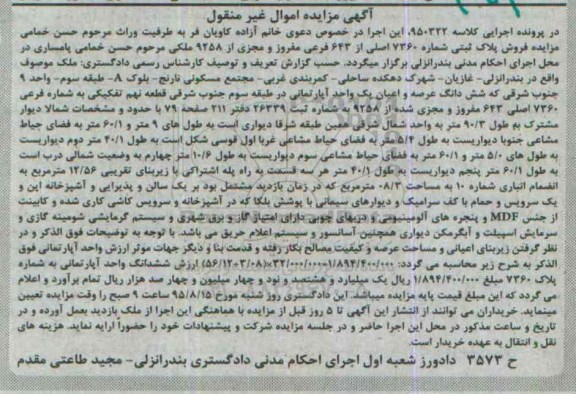 آگهی مزایده اموال غیر منقول
در پرونده اجرایی کلاسه ۹۵۰۳۲۲، این اجرا در خصوص دعوی خانم آزاده کاویان فر به طرفیت وراث مرحوم حسن خمامی
مزایده فروش پلاک ثبتی شماره ۷۳۶۰ اصلی از ۶۴۳ فرعی مفروز و مجزی از ۹۲۵۸ ملکی مرحوم حسن خمامی پامساری در
محل اجرای احکام مدنی بندرانزلی برگزار میگردد. حسب گزارش تعریف و توصیف کارشناس رسمی دادگستری: ملک موصوف
واقع در بندرانزلی- غازیان- شهرک دهکده ساحلی- کمربندی غربی- مجتمع مسکونی نارنج- بلوک A- طبقه سوم- واحد ۹
جنوب شرقی که شش دانگ عرصه و اعیان یک واحد آپارتمانی در طبقه سوم جنوب شرقی قطعه نهم تفکیکی به شماره فرعی
۷۳۶۰ اصلی ۶۴۳ مفروز و مجزی شده از ۹۲۵۸ به شماره ثبت ۲۶۳۳۹ دفتر ۲۱۱ صفحه ۷۹ با حدود و مشخصات شمالا دیوار
مشترک به طول ۹۰/۳ متر به واحد شمال شرقی همین طبقه شرقا دیواری است به طول های ۹ متر و ۶۰/۱ متر به فضای حیاط
مشاعی جنوبا دیواریست به طول ۵/۴ متر به فضای حیاط مشاعی غربا اول قوسی شکل است به طول ۴۰/۱ متر دوم دیواریست
به طول های ۵/۰ متر و ۶۰/۱ متر به فضای حیاط مشاعی سوم دیواریست به طول ۱۰/۶ متر چهارم به وضعیت شمالی درب است
به طول ۶۰/۱ متر پنجم دیواریست به طول ۴۰/۱ متر هر سه قسمت به راه پله اشتراکی با زیربنای تقریبی ۱۲/۵۶ مترمربع به
انضمام انباری شماره ۱۰ به مساحت ۰۸/۳ مترمربع که در زمان بازدید مشتمل بود بر یک سالن و پذیرایی و آشپزخانه اپن و
یک سرویس و حمام با کف سرامیک و دیوارهای سیمانی با پوشش بلکا که در آشپزخانه و سرویس کاشی کاری شده و کابینت
از جنس MDF و پنجره های آلومینیومی و دربهای چوبی دارای امتیاز گاز و برق شهری و سیستم گرمایشی شومینه گازی و
سرمایش اسپیلت و آبگرمکن دیواری همچنین آسانسور و سیستم اعلام حریق می باشد. با توجه به توضیحات فوق الذکر و در
نظر گرفتن زیربنای اعیانی و مساحت عرصه و کیفیت مصالح بکار رفته و قدمت بنا و دیگر جهات موثر ارزش واحد آپارتمانی فوق
الذکر به شرح زیر محاسبه می گردد: ۱/۸۹۴/۴۰۰/۰۰۰=۳۲/۰۰۰/۰۰۰×(۵۶/۱۲+۰۳/۰۸) ارزش ششدانگ واحد آپارتمانی به شماره
پلاک ۷۳۶۰ مبلغ ۱/۸۹۴/۴۰۰/۰۰۰ ریال یک میلیارد و هشتصد و نود و چهار میلیون و چهار صد هزار ریال تمام برآورد و اعلام
می گردد که این مبلغ قیمت پایه مزایده میباشد. این دادگستری روز شنبه مورخ ۹۵/۸/۱۵ ساعت ۹ صبح را وقت مزایده تعیین
مینماید. خریداران می توانند از انتشار این آگهی تا ۵ روز قبل از مزایده با هماهنگی این اجرا از ملک بازدید بعمل آورده و در
تاریخ و ساعت مذکور در محل این اجرا حاضر و در جلسه مزایده شرکت و پیشنهادات خود را حضوراً ارایه نماید. هزینه های
نقل و انتقال به عهده خریدار است.
ح ۳۵۷۳ دادورز شعبه اول اجرای احکام مدنی دادگستری بندرانزلی- مجید طاعتی مقدم